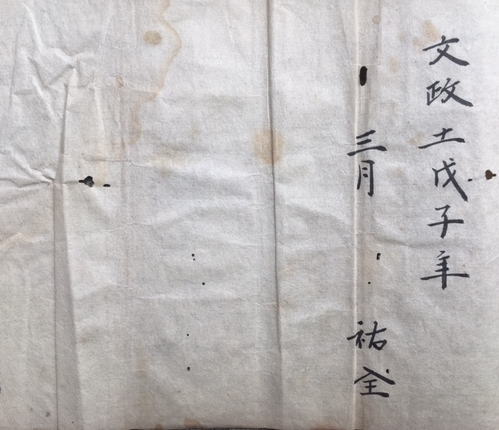 文政十一戊子年
三月
祐全